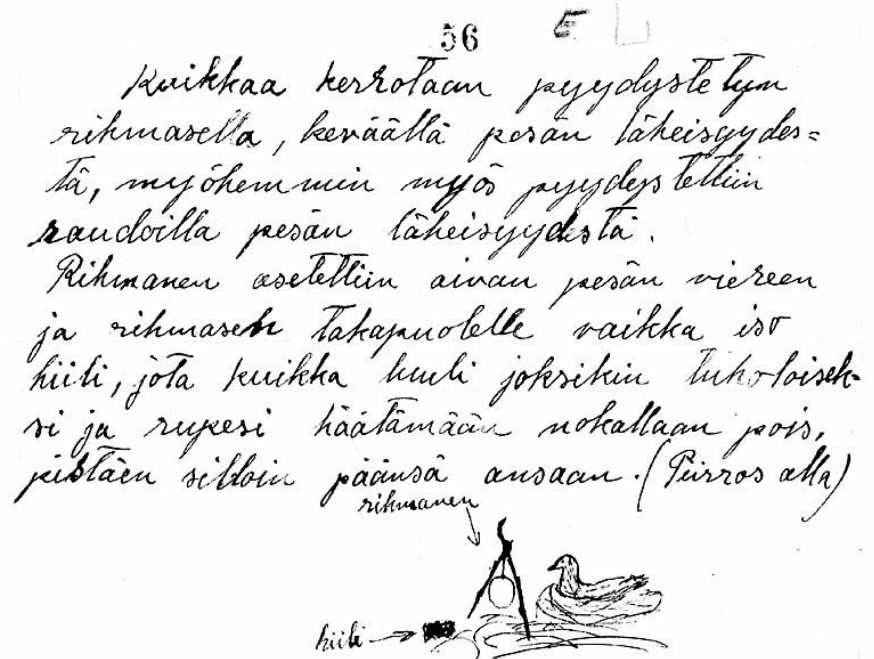 56 E L
Kuikkaa kerrotaan pyydystetyn
rihmasella, keväällä pesän läheisyydes=
tä, myöhemmin myös pyydystettiin
raudoilla pesän läheisyydestä.
Rihmanen asetettiin aivan pesän viereen
ja rihmasen takapuolelle vaikka iso
hiili, jota kuikka luuli joksikin tuholaisek-
si ja rupesi häätämään nokallaan pois,
pistäen silloin päänsä ansaan. (Piirros alla)
rihmanen
hiili